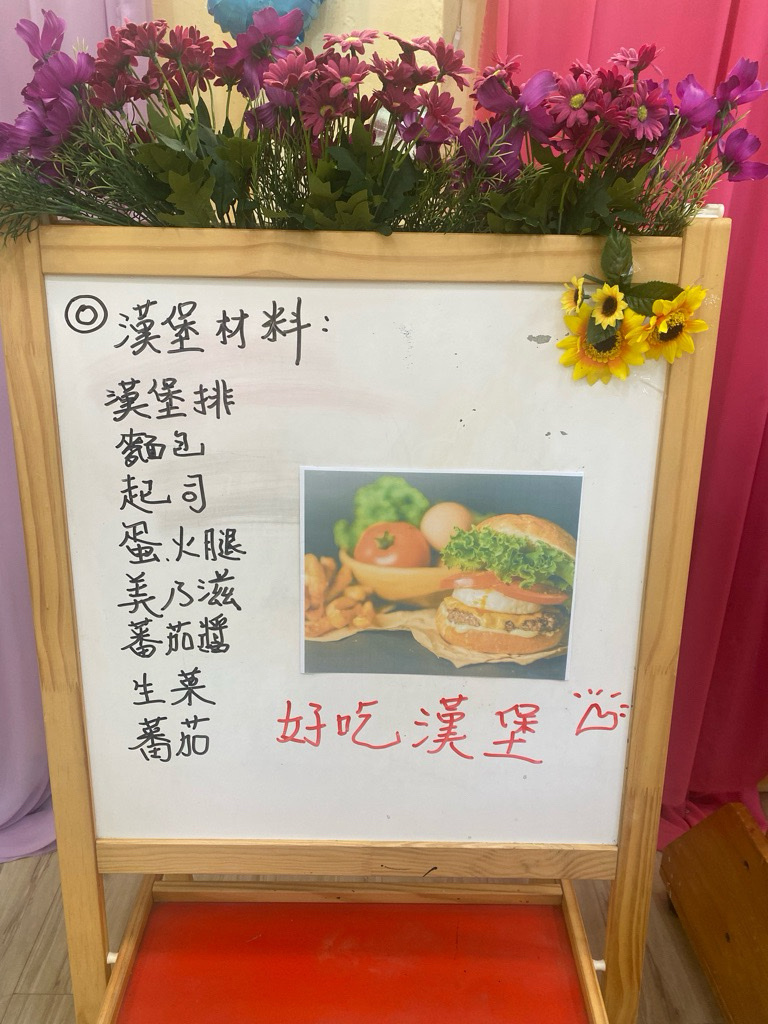 ◎漢堡材料:
漢堡排
麵包
起司
蛋.火腿
美乃滋
蕃茄醬
生菜
蕃茄
好吃漢堡